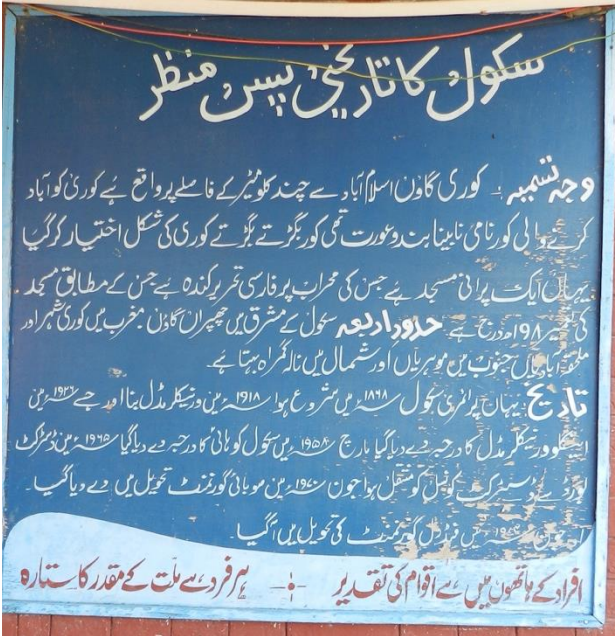 سکول کا تاریخی پس منظر
وجہ تسمیہ :۔ کوری گاؤں اسلام آباد سے چند کلومیٹر کے فاصلے پر واقع ہے کوری کو آباد
کرنے والی کور نامی نابینا ہندو عورت تھی کور بگڑتے بگڑتے کوری کی شکل اختیار کر گیا
یہاں ایک پرانی مسجد ہے جس کی محراب پر فارسی تحریر کندہ ہے جس کے مطابق مسجد
کی تعمیر ۹۸ا ھ درج ہے۔ حدود اربعہ سکول کے مشرق میں چھپراں گاؤں مغرب میں کوری شہر اور
ملحقہ آبادیاں جنوب میں موہریاں اور شمال میں نالہ گمراہ بہتا ہے۔
تاریخ: یہاں پرائمری سکول ۱۸۶۸ء میں شروع ہوا ۱۹۱۸ء میں ورنیکلر مڈل بنا اور جسے ۱۹۲۶ء میں
اینگلو ورنیکلر مڈل کا درجہ دے دیا گیا مارچ ۱۹۵۴ء میں سکول کو ہائی کا درجہ دے دیا گیا ۱۹۶۵ء میں ڈسٹرکٹ
بورڈ سے ڈسٹرکٹ کونسل کو منتقل ہوا جون ۱۹۷۰ء میں صوبائی گورنمنٹ تحویل میں دے دیا گیا۔
گورنمنٹ کی تحویل میں آگیا۔
افراد کے ہاتھوں میں ہے اقوام کی تقدیر ہر فرد ہے ملت کے مقدر کا ستارہ